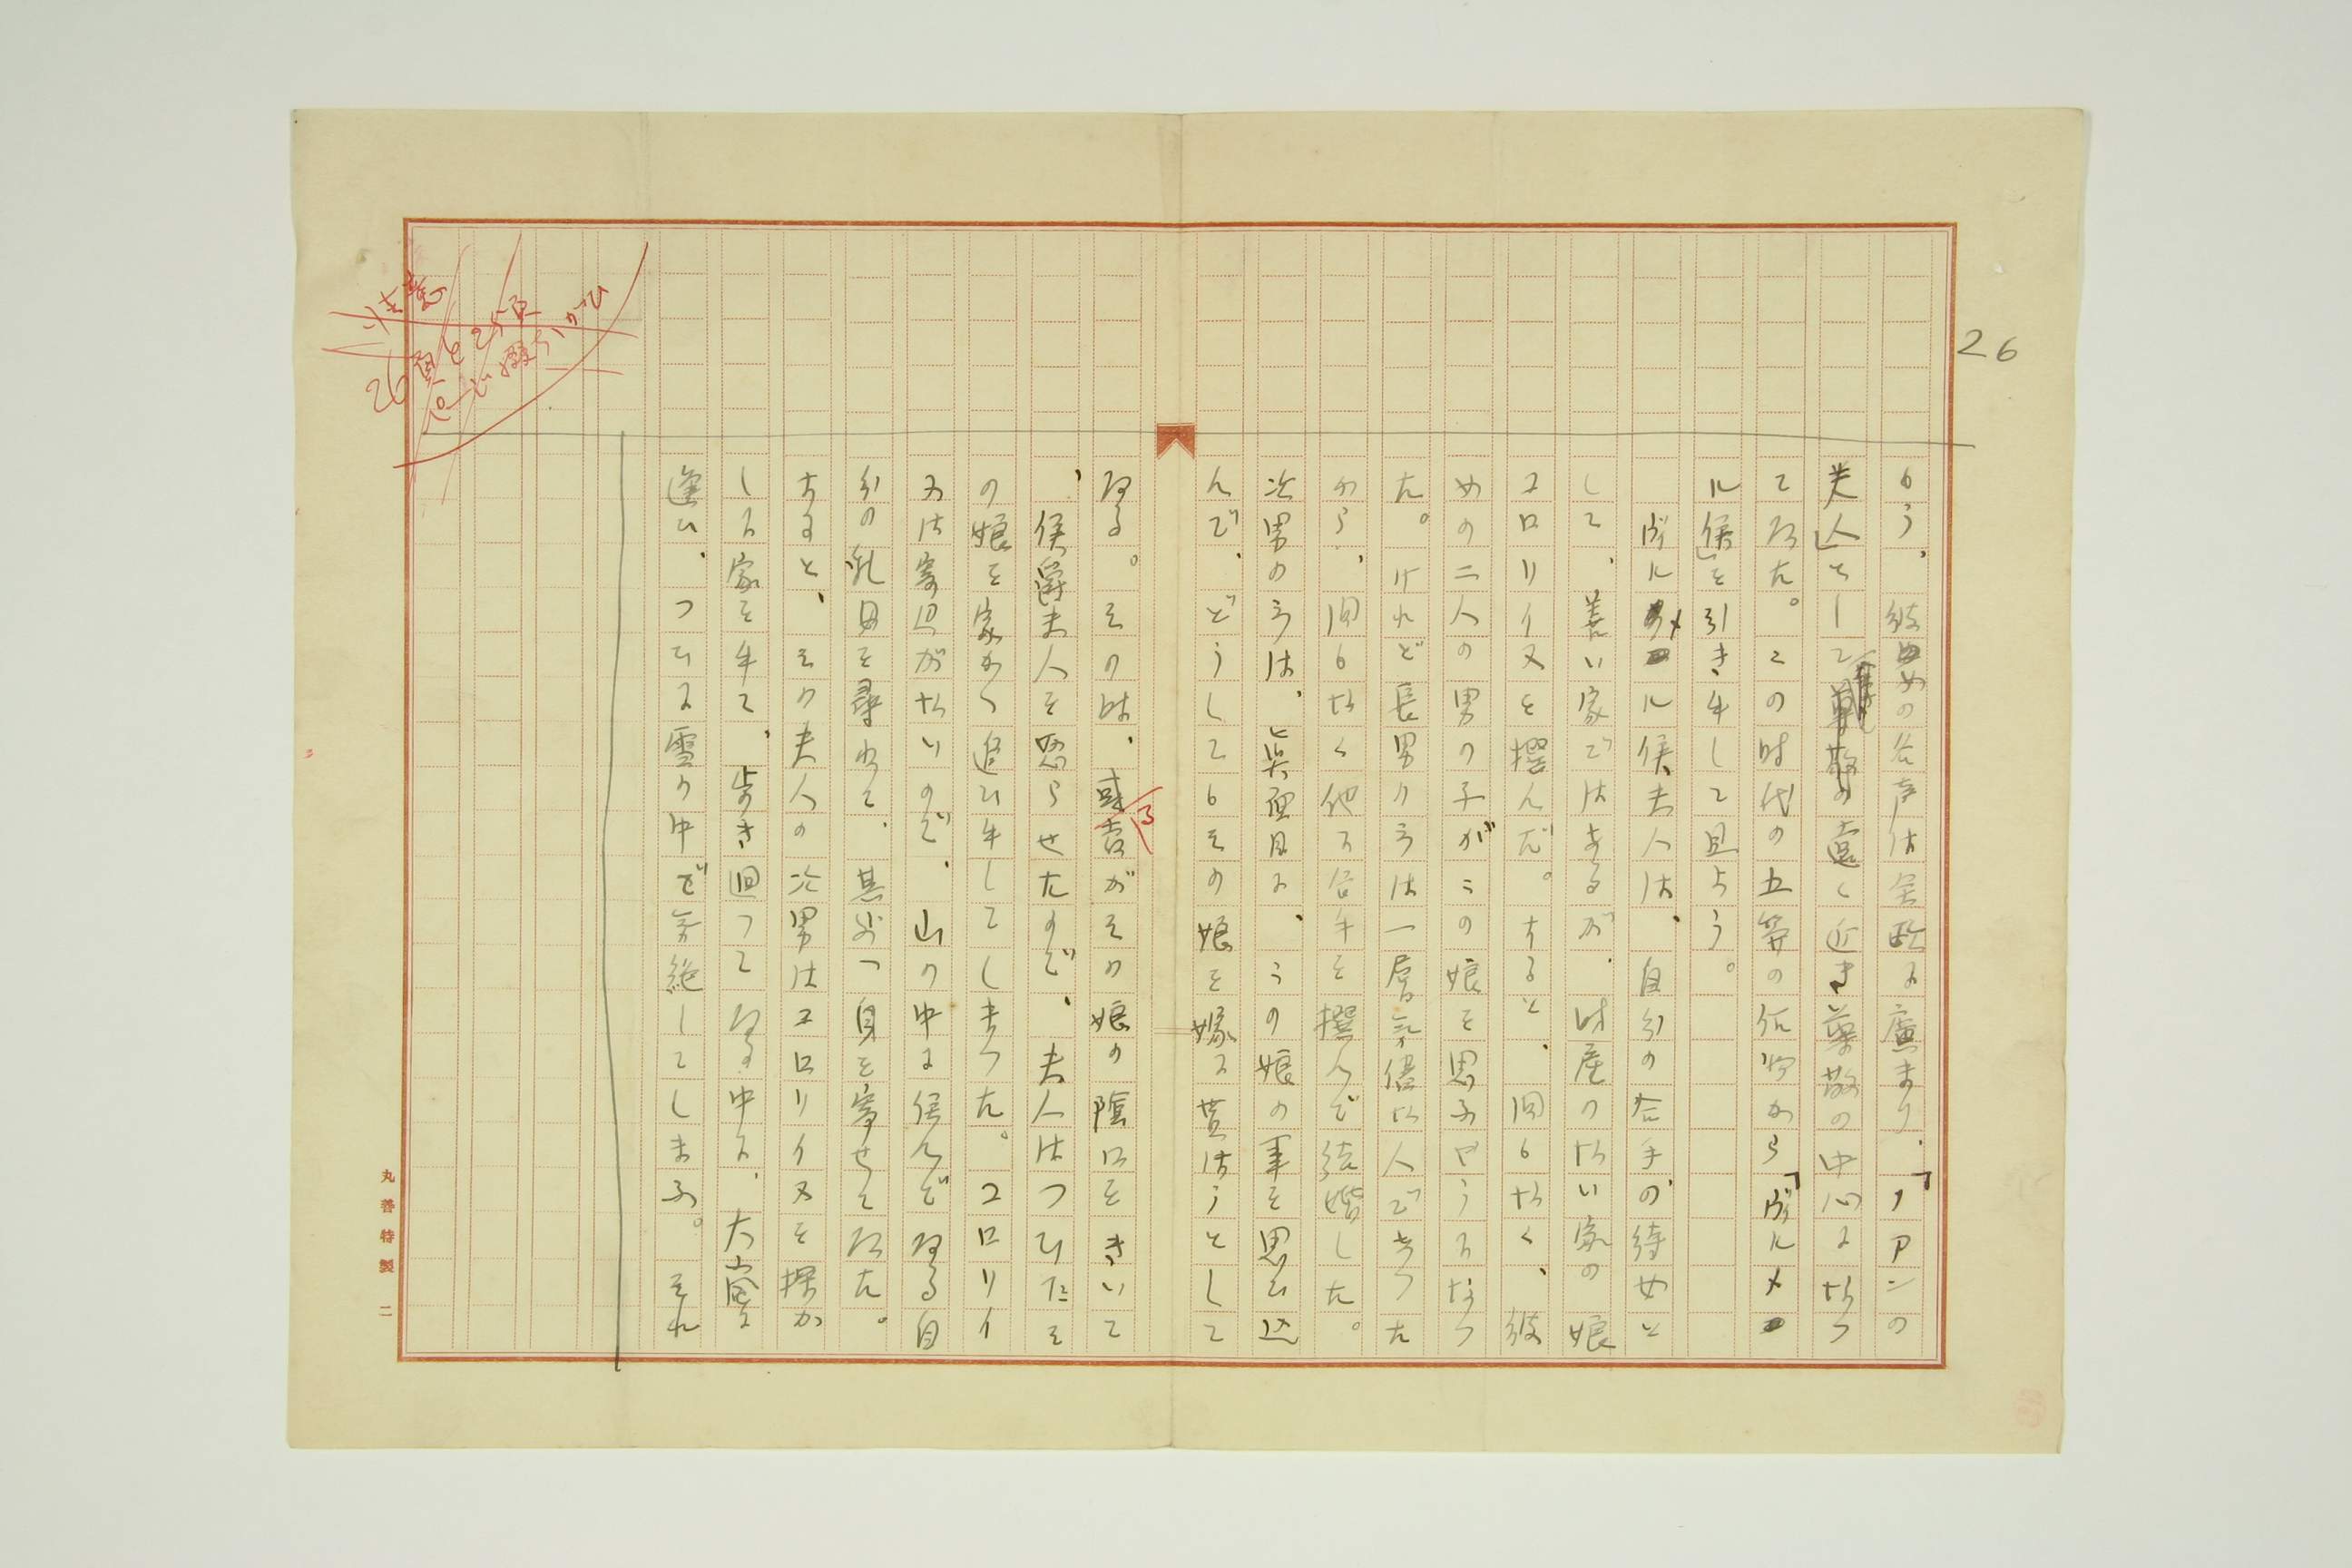 26
らう、彼女の名声は全欧に広まり、「ノアンの
夫人」として遠く近き尊敬の中心になつ
てゐた。この時代の五篇の佐物から「ヴィルメ
ル侯」を引き出して見よう。
ヴィルメル侯夫人は、自分の合手の侍女と
して、善い家ではあるが、財産のない家の娘
コロリイヌを撰んだ。すると、間もなく、彼
女の二人の男の子がこの娘を思ふやうになつ
た。けれど長男の方は一層気儘な人であつた
から、間もなく他に合手を撰んで結婚した。
次男の方は、真面目に、この娘の事を思ひ込
んで、どうしてもその娘を嫁に貰はうとして
ゐる。その時、或る者がその娘の陰口をきいて
、侯爵夫人を怒らせたので、夫人はつひにそ
の娘を家から追ひ出してしまつた。コロリイ
ヌは寄辺がないので、山の中に住んでゐる自
分の乳母を尋ねて、其処へ身を寄せてゐた。
すると、その夫人の次男はコロリイヌを探か
しに家を出て、歩き回つてゐる中に、大雪に
逢ひ、つひに雪の中で気絶してしまふ。それ
注意
26頁と25頁
綴ちがひ
丸善特製 二